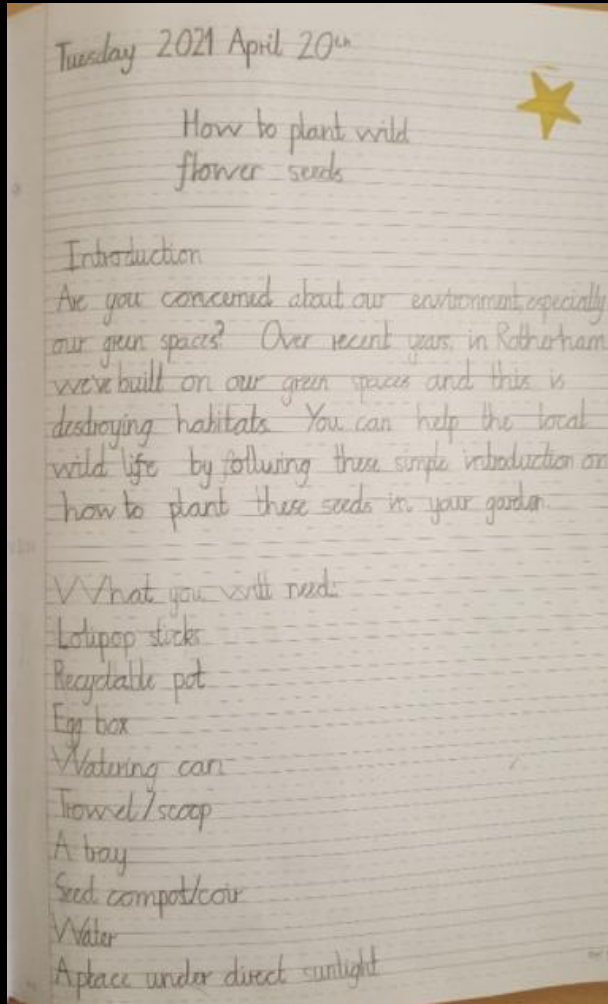 Tuesday 2021 April 20th
How to plant wild
flower seeds
Introduction
Are you concerned about our environment, especially
our green spaces? Over recent years, in Rotherham
we've built on our green spaces and this is
destroying habitats. You can help the local
wild life by folluring these simple introduction on
how to plant these seeds in your garden.
What you will need:
Lolipop sticks
Recyclable pot
Egg box
Watering can
Trowel/scoop
A tray
Seed compot/coir
Water
A place under direct sunlight